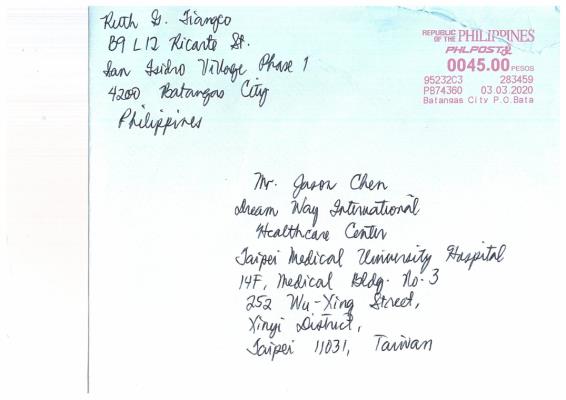 Ruth G. Tiangco
B9 L12 Ricarte St.
San Isidro Village Phase 1
4200 Batangas City
Philippines
REPUBLIC OF THE PHILIPPINES
PHLPOST
0045.00 PESOS
95232C3 283459
PB74360 03.03.2020
Batangas City P.O. Bata
Mr. Jason Chen
Dream Way International
Healthcare Center
Taipei Medical University Hospital
14F, Medical Bldg. No. 3
252 Wu-Xing Street,
Xinyi District,
Taipei 11031, Taiwan